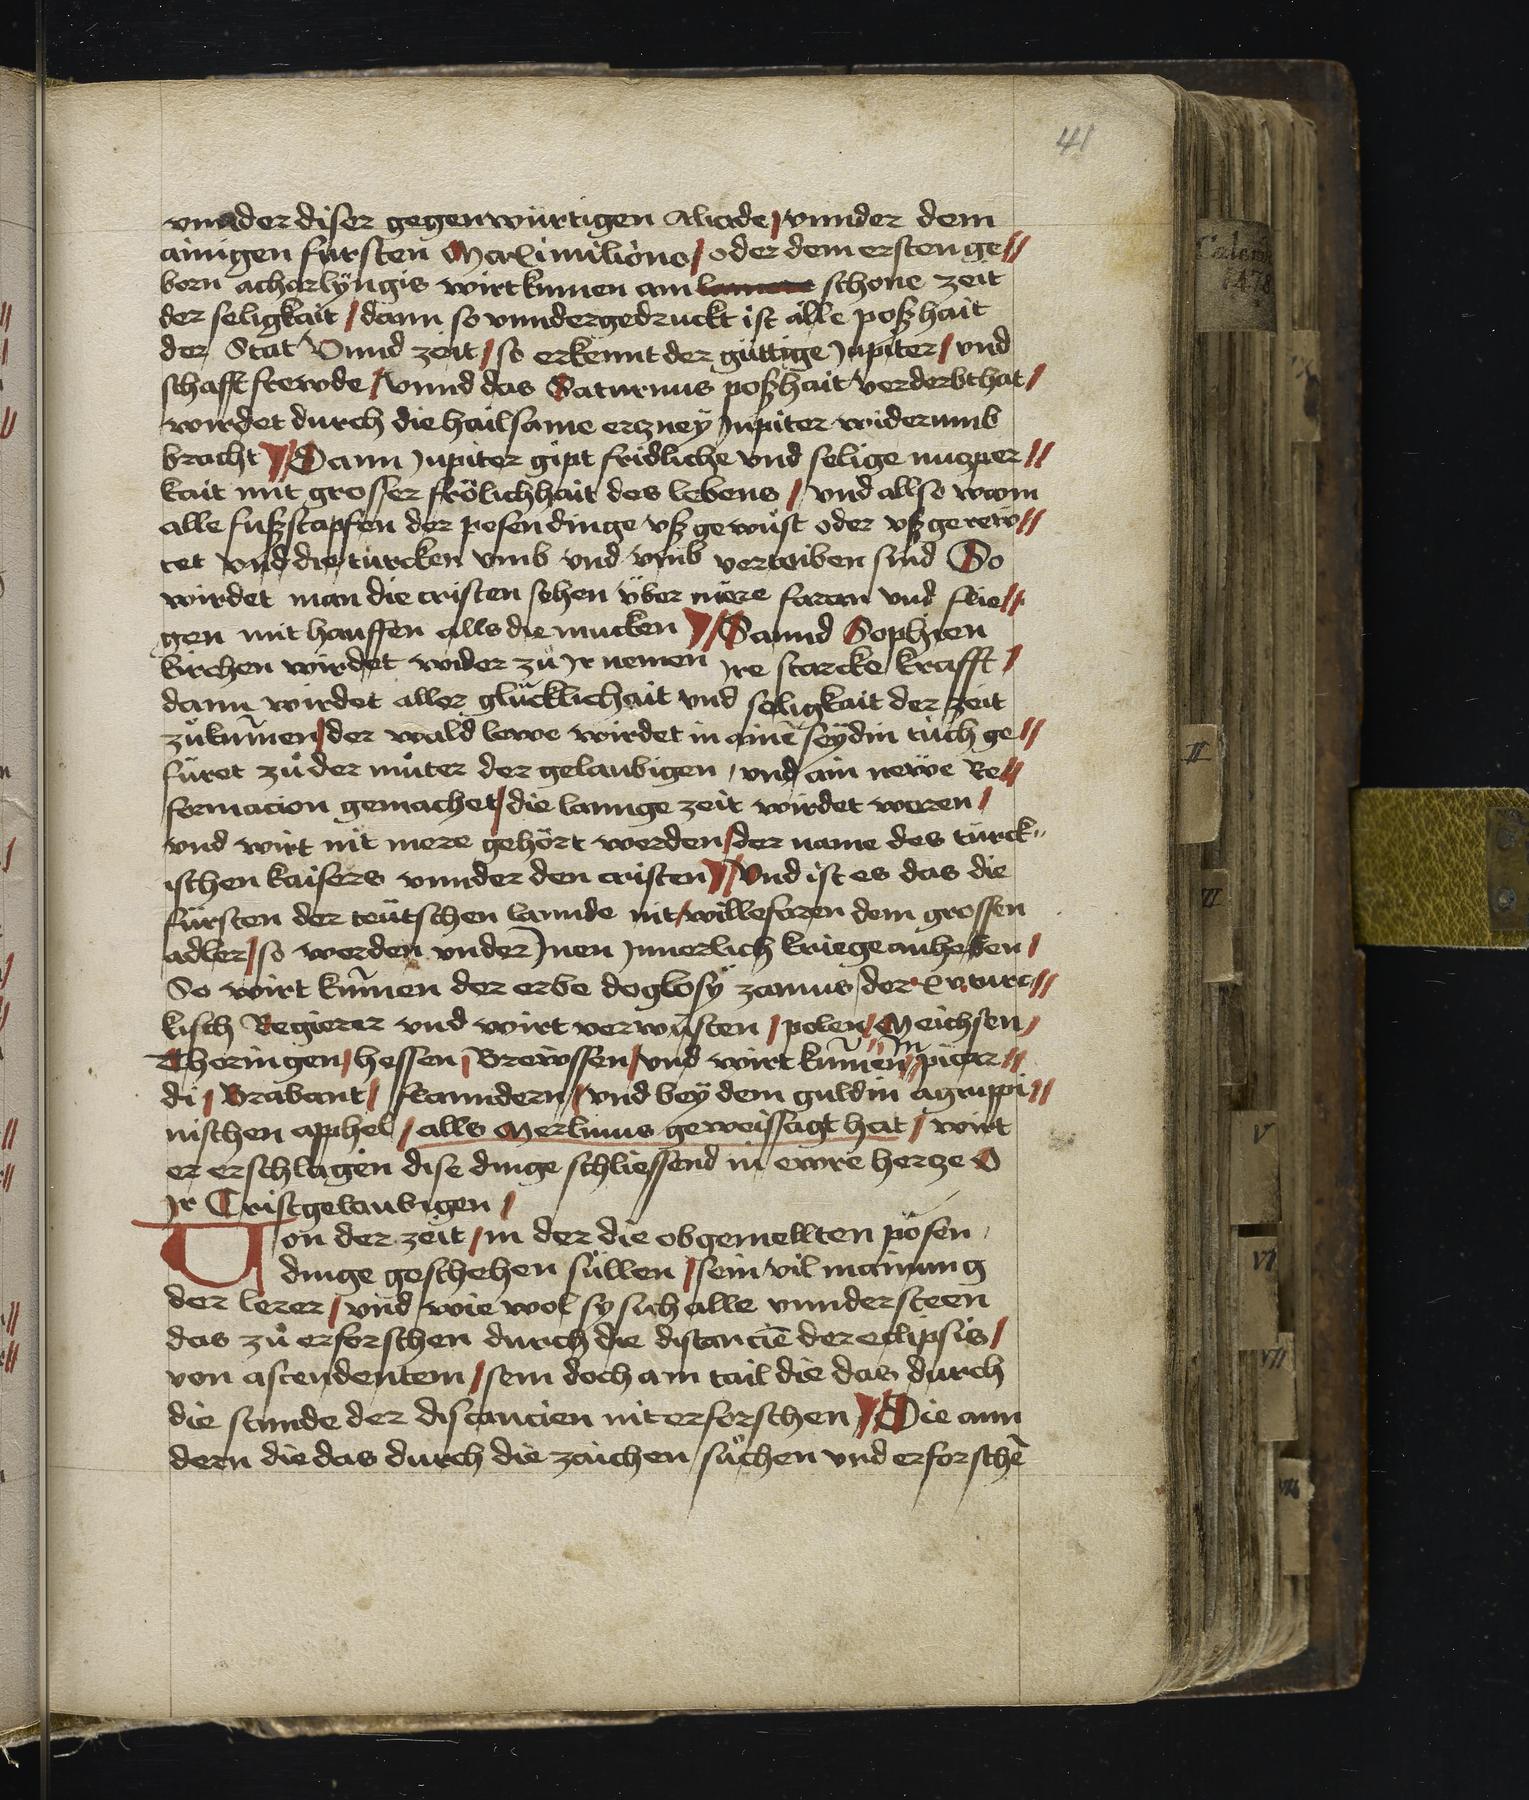 41
vnnder diser gegenwürtigen Aliade / vnnder dem
ainigen fursten Maximiliono / oder dem ersten ge//
born acharlyngis wirt kumen am schone zeit
der seligkait / dann so vnndergedruckt ist alle poßhait
der Stat Vnnd zeit / so erkennt der güttige Jupiter / vnd
schafft frewde / Vnnd das Saturnus poßhait verderbt hat /
wirdet durch die hailsame erczney Jupiter widerumb
bracht // Dann Jupiter gipt fridliche vnd selige nuczper //
kait mit grosser frölichhait des lebens / vnd allso wann
alle fußstapfen der pesen dinge vß gewüst oder vßgerew //
tet vnd die turcken vmb vnd vmb vertriben sind So
wirdet man die cristen sehen über mere faren vnd flie //
gen mit hauffen alls die mucken // Sannd Sophien
kirchen wirdet wider zů Jr nemen Jre starcke krafft /
dann wirdet aller glücklichait vnd seligkait der zeit
zůkum̄en / der wald lewe wirdet in ainē seydin tuch ge //
füret zů der můter der gelaubigen / vnd ain newe Re //
formacion gemachet / die lannge zeit wirdet weren /
vnd wirt nit mere gehört werden / der name des türck"
ischen kaisers vnnder den cristen // Vnd ist es das die
fürsten der teütschen lannde nit / willefaren dem grossen
adler / so werden vnder Jnen Jnnerlich kriege anheben /
So wirt kum̄en der erbe deglosy zenius / der xv. turc //
kisch Regierer vnd wirt verwüsten / polen / Meichsen /
Theringen / hessen / Brewssen / vnd wirt kum̄en Jn picar //
di / Brabant / flanndern / vnd bey dem guldin agrippi //
nischen apphel / alls Merlinus geweissagt hat / wirt
er erschlagen dise dinge schliessend in ewre hercze O
Jr Cristgelaubigen /
Von der zeit / in der die obgemellten pösen /
dinge geschehen süllen / sein vil mainung
der lerer / vnd wie wol sy sich alle vnndersteen
das zů erforschen durch die distanciē der eclipsis /
von ascendentem / sein doch am tail die das durch
die stunde der distancien nit erforschen // Die ann
dern die das durch die zaichen sůchen vnd erforschē
Calend
1478
II
V
VI
VII